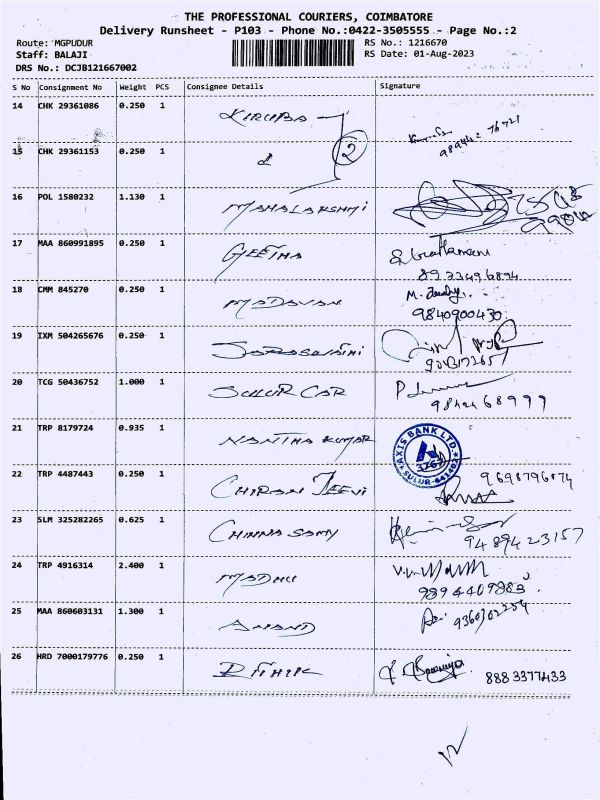 THE PROFESSIONAL COURIERS, COIMBATORE
Delivery Runsheet - P103 - Phone No.:0422-3505555 - Page No.:2
Route: MGPUDUR
RS No.: 1216670
Staff: BALAJI
RS Date: 01-Aug-2023
DRS No.: DCJB121667002
S No Consignment No Weight PCS Consignee Details Signature
14 CHK 29361086 0.250 1 KIRUBA
15 CHK 29361153 0.250 1 2
16 POL 1580232 1.130 1 MAHALAKSHMI
17 MAA 860991895 0.250 1 GEETHA
18 CMM 845270 0.250 1 MADAVAN
9840900430
19 IXM 504265676 0.250 1 SARASWATHI
20 TCG 50436752 1.000 1 SULUR CAR
9842468999
21 TRP 8179724 0.935 1 NANTHA KUMAR
AXIS BANK LTD.
SULUR-641402
22 TRP 4487443 0.250 1 CHIRAN JEEVI
9698796874
23 SLM 325282265 0.625 1 CHINNA SAMY
9489423157
24 TRP 4916314 2.400 1 MADHU
9894409883
25 MAA 860603131 1.300 1 ANAND
26 HRD 7000179776 0.250 1 RITHIK
8883377433